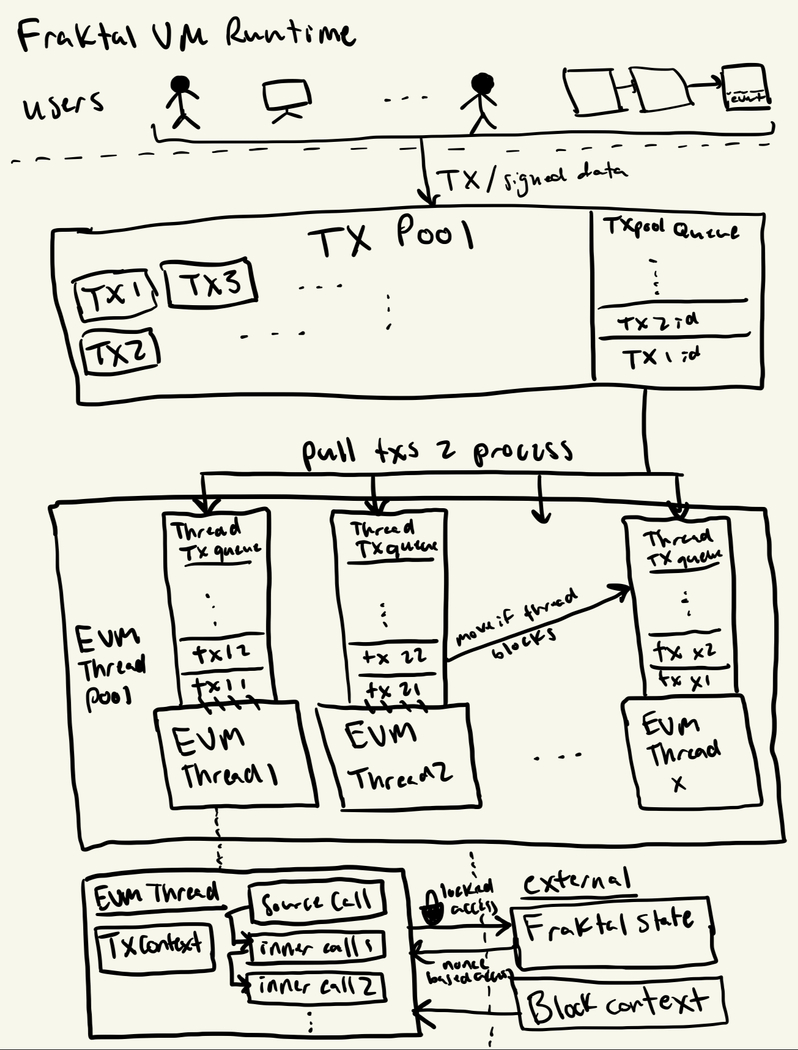 Fraktal VM Runtime
users
event
TX/signed data
TX Pool
TX1
TX3
TX2
TXpool Queue
TX2id
TX1id
pull txs 2 process
EVM
Thread
Pool
Thread
TX queue
tx12
tx11
EVM
Thread1
Thread
TXqueue
tx 22
tx 21
EVM
Thread2
move if thread
blocks
Thread
TX queue
tx x2
tx x1
EVM
Thread
x
EVM Thread
TxContext
Source Call
inner call 1
inner call 2
locked
access
nonce
based access
external
Fraktal State
Block context